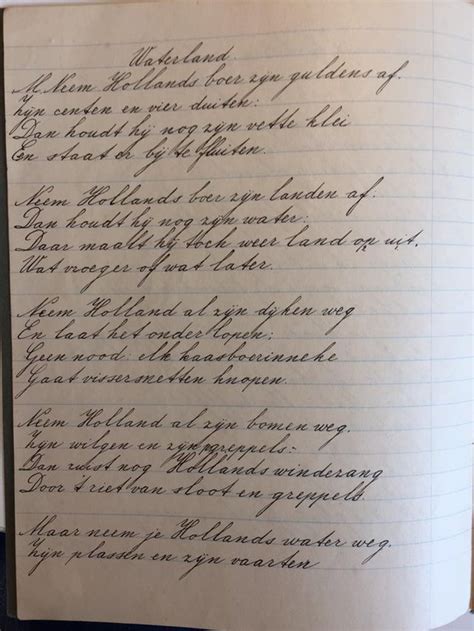 Waterland
M. Neem Hollands boer zijn guldens af.
Zijn centen en vier duiten:
Dan houdt hij nog zijn vette klei
En staat er bij te fluiten.
Neem Hollands boer zijn landen af.
Dan houdt hij nog zijn water:
Daar maalt hij toch weer land op uit,
Wat vroeger of wat later.
Neem Holland al zijn dijken weg
En laat het onder lopen:
Geen nood: elk kaasboerinneke
Gaat vissersnetten knopen.
Neem Holland al zijn bomen weg.
Zijn wilgen en zijn greppels:
Dan ruist nog Hollands windezang
Door 't riet van sloot en greppels.
Maar neem je Hollands water weg.
Zijn plassen en zijn vaarten